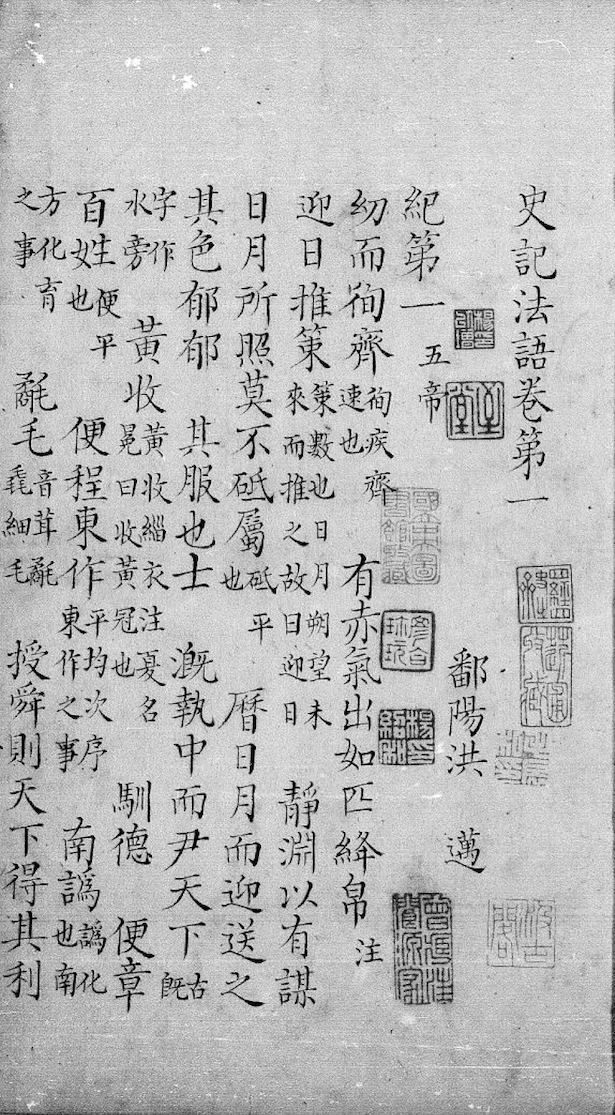 史記法語卷第一
鄱陽洪 邁
紀第一 五帝
幼而徇齊 徇疾齊速也 有赤氣出如匹絳帛 注
迎日推策 策數也日月朔望未來而推之故曰迎日 靜淵以有謀
日月所照莫不砥屬 砥平也 曆日月而迎送之
其色郁郁 其服也士 溉執中而尹天下 古既
字作水旁 黃收 黃收緇衣注夏名冕曰收黃冠也 馴德 便章
百姓 便平也 便程東作 平均次序東作之事 南譌 譌化也南
方化育之事 氄毛 音茸氄毳細毛 授舜則天下得其利
汲古閣